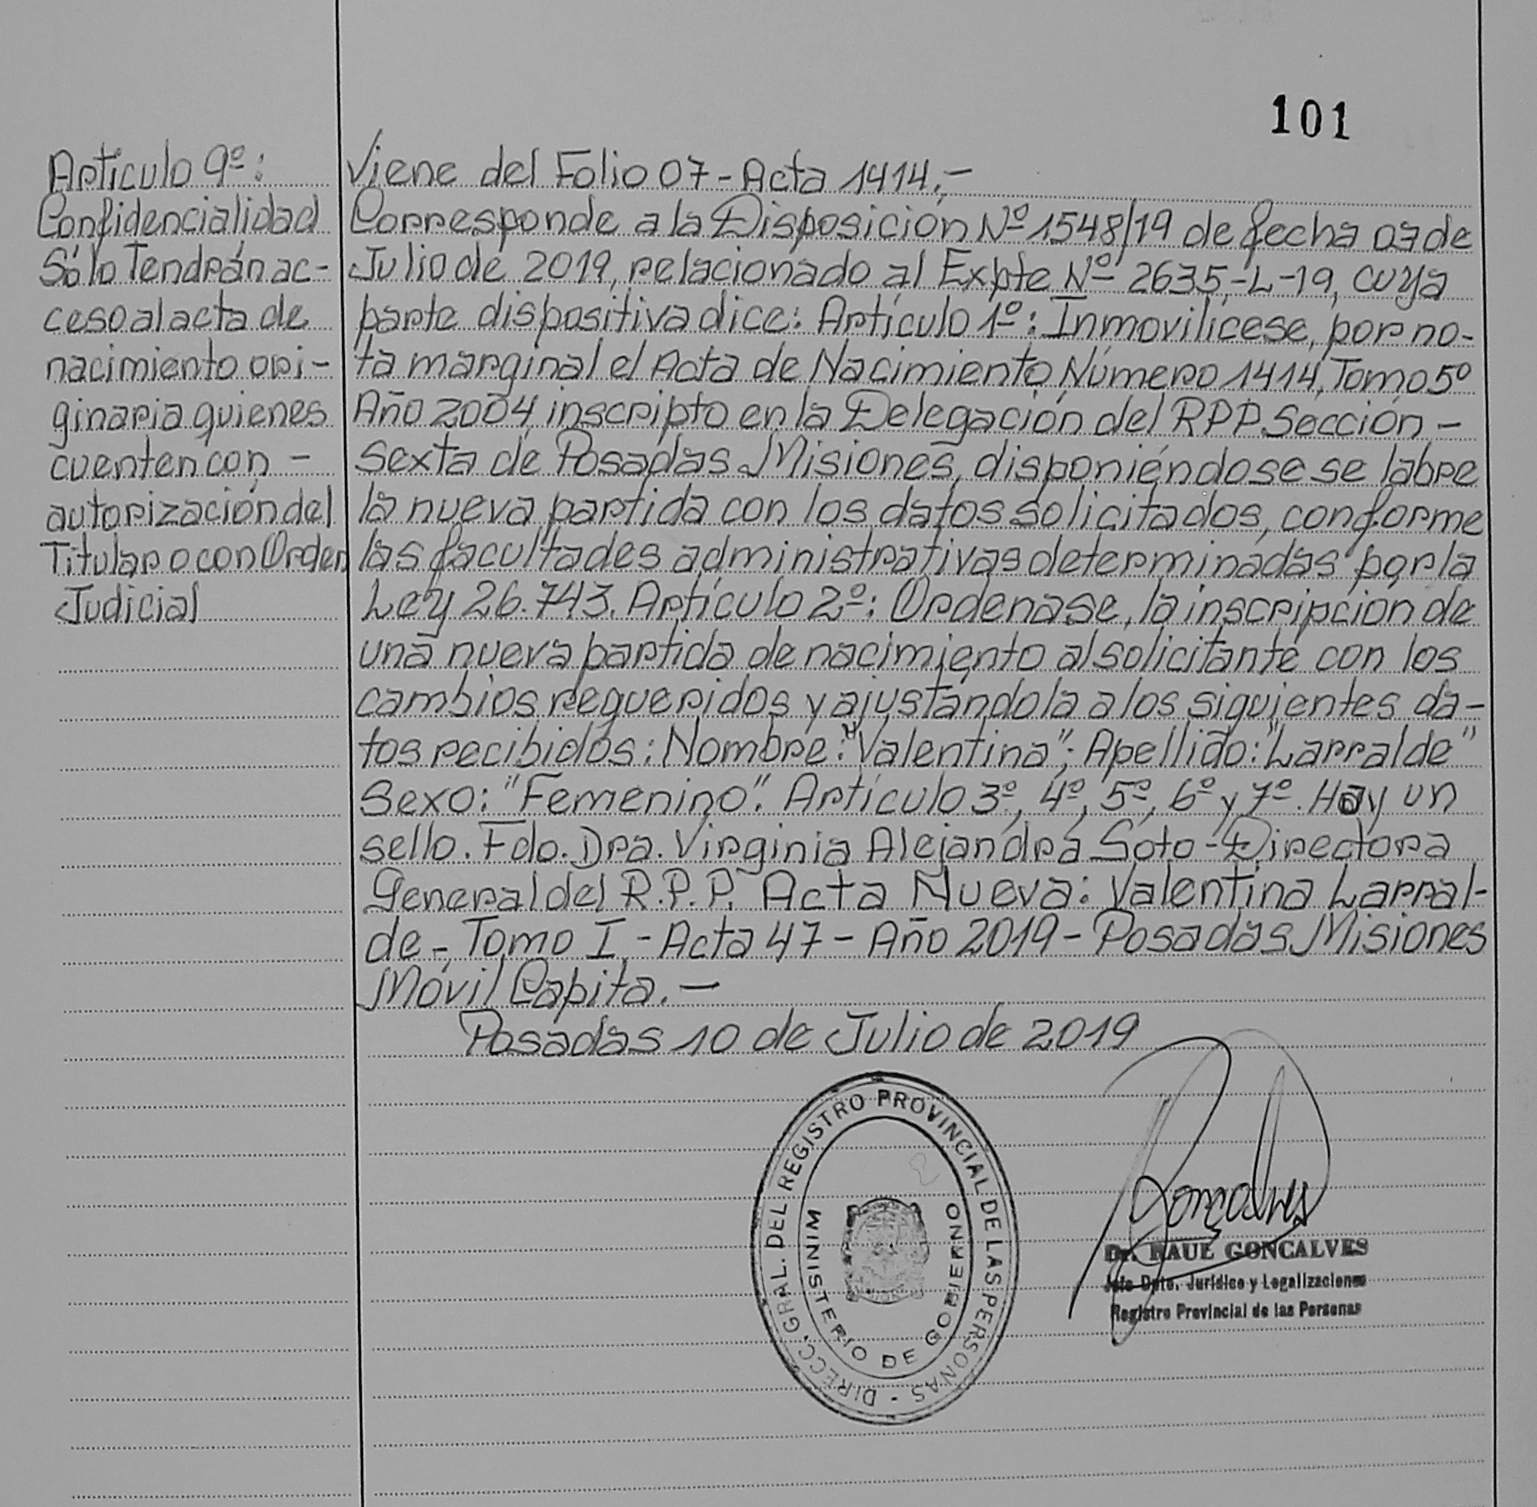 101
Artículo 9º:
Confidencialidad
Sólo Tendrán ac-
ceso al acta de
nacimiento ori-
ginaria quienes
cuenten con -
autorización del
Titular o con Orden
Judicial
Viene del Folio 07 - Acta 1414.-
Corresponde a la Disposición Nº 1548/19 de fecha 07 de
Julio de 2019, relacionado al Expte Nº 2635-L-19, cuya
parte dispositiva dice: Artículo 1º: Inmovilícese, por no-
ta marginal el Acta de Nacimiento Número 1414, Tomo 5º
Año 2004 inscripto en la Delegación del RPP Sección -
Sexta de Posadas Misiones, disponiéndose se labre
la nueva partida con los datos solicitados, conforme
las facultades administrativas determinadas por la
Ley 26.743. Artículo 2º: Ordenase, la inscripción de
una nueva partida de nacimiento al solicitante con los
cambios requeridos y ajustándola a los siguientes da-
tos recibidos: Nombre: "Valentina"; Apellido: "Larralde"
Sexo: "Femenino". Artículo 3º, 4º, 5º, 6º y 7º. Hay un
sello. Fdo. Dra. Virginia Alejandra Soto - Directora
General del R.P.P. Acta Nueva: Valentina Larral-
de - Tomo I - Acta 47 - Año 2019 - Posadas Misiones
Móvil Capita. -
Posadas 10 de Julio de 2019
DIRECC. GRAL. DEL REGISTRO PROVINCIAL DE LAS PERSONAS -
MINISTERIO DE GOBIERNO
Gonçalves
Dr. RAUL GONCALVES
Jefe Dpto. Jurídico y Legalizaciones
Registro Provincial de las Personas